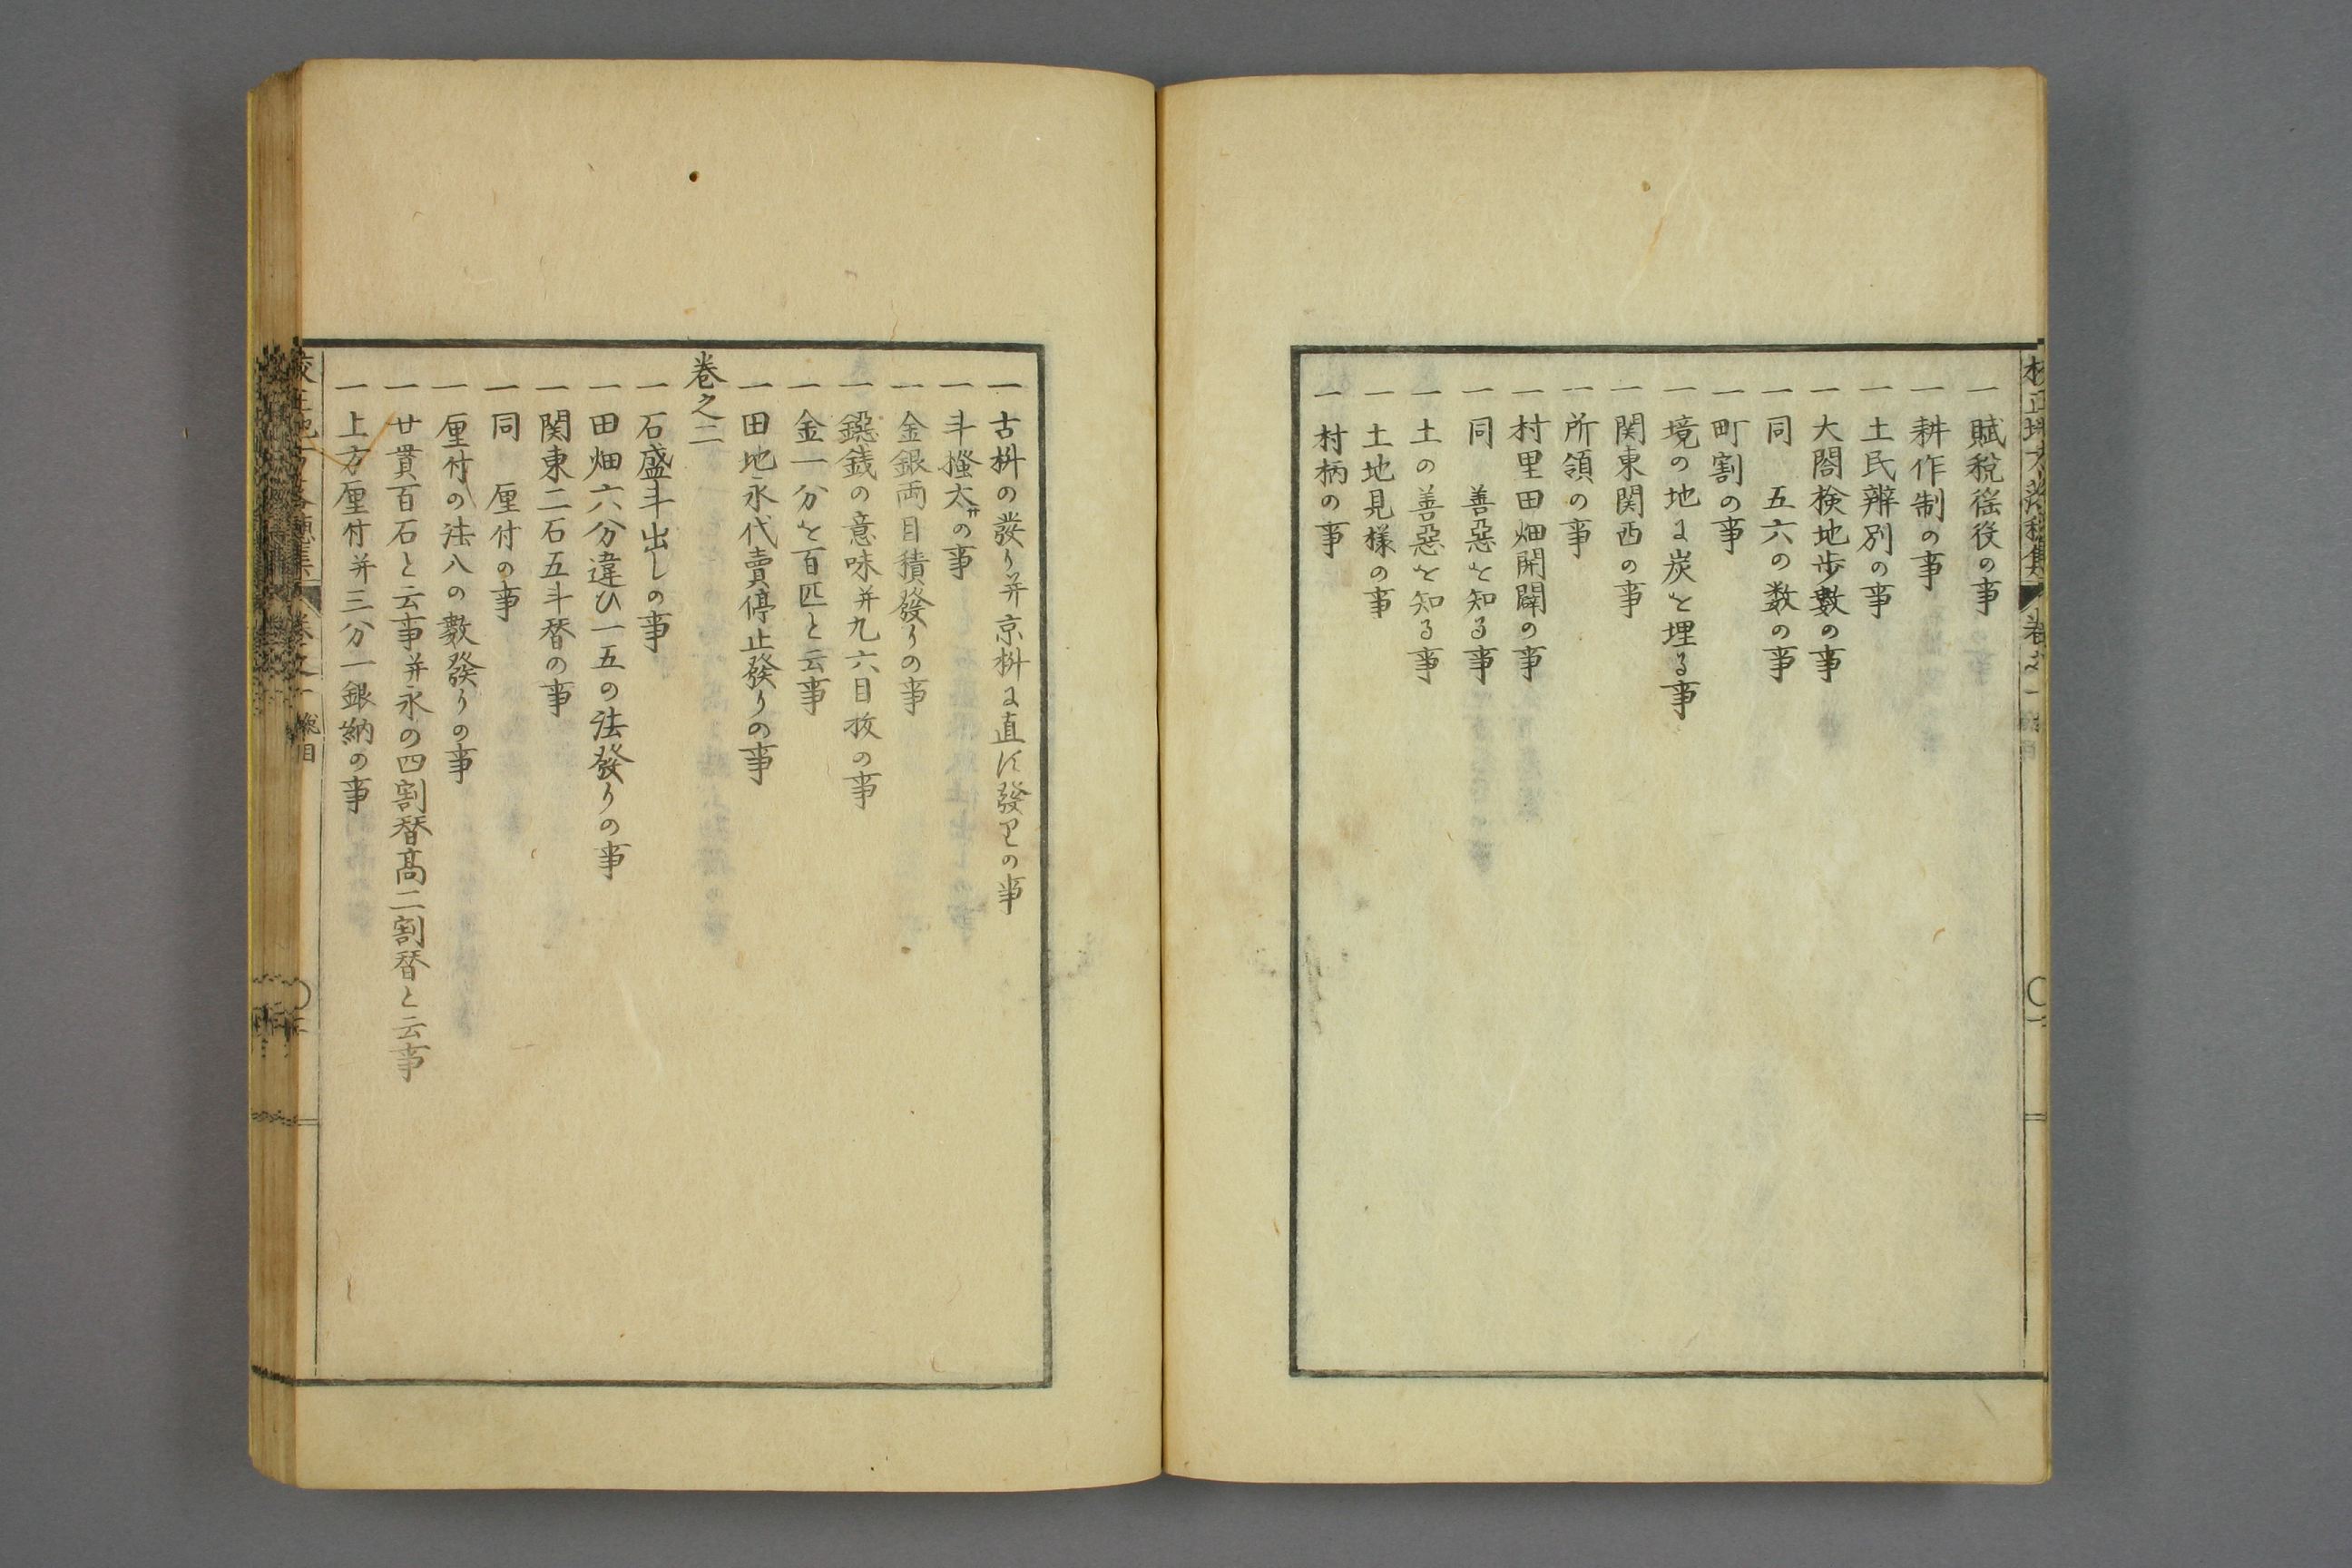 一 賦税徭役の事
一 耕作制の事
一 土民辨別の事
一 大閤検地歩數の事
一 同 五六の数の事
一 町割の事
一 境の地に炭を埋る事
一 関東関西の事
一 所領の事
一 村里田畑開闢の事
一 同 善惡を知る事
一 土の善惡を知る事
一 土地見様の事
一 村柄の事
一 古枡の發り并京枡に直す發りの事
一 斗掻太サの事
一 金銀両目積發りの事
一 鐚銭の意味并九六目抜の事
一 金一分を百匹と云事
一 田地永代賣停止發りの事
巻之二
一 石盛斗出しの事
一 田畑六分違ひ一五の法發りの事
一 関東二石五斗替の事
一 同 厘付の事
一 厘付の法八の數發りの事
一 廿貫百石と云事并永の四割替髙二割替と云事
一 上方厘付并三分一銀納の事